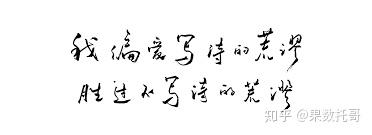 我偏爱写诗的荒谬
胜过不写诗的荒谬
知乎 @果数托哥